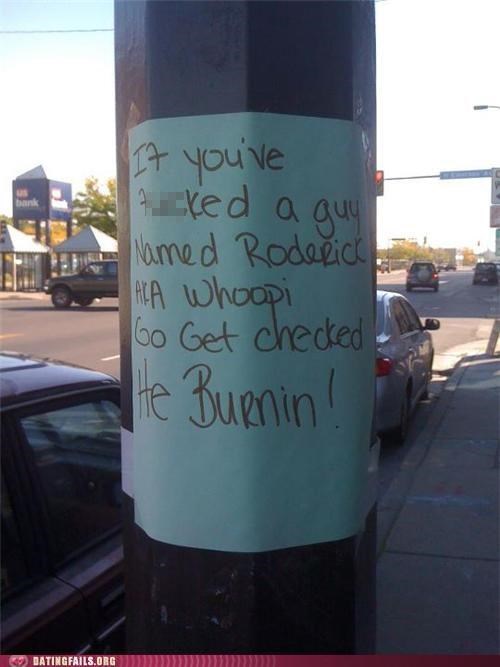 If you've
F ked a guy
Named Roderick
AKA Whoopi
Go Get checked
He Burnin!
us
bank
DATINGFAILS.ORG